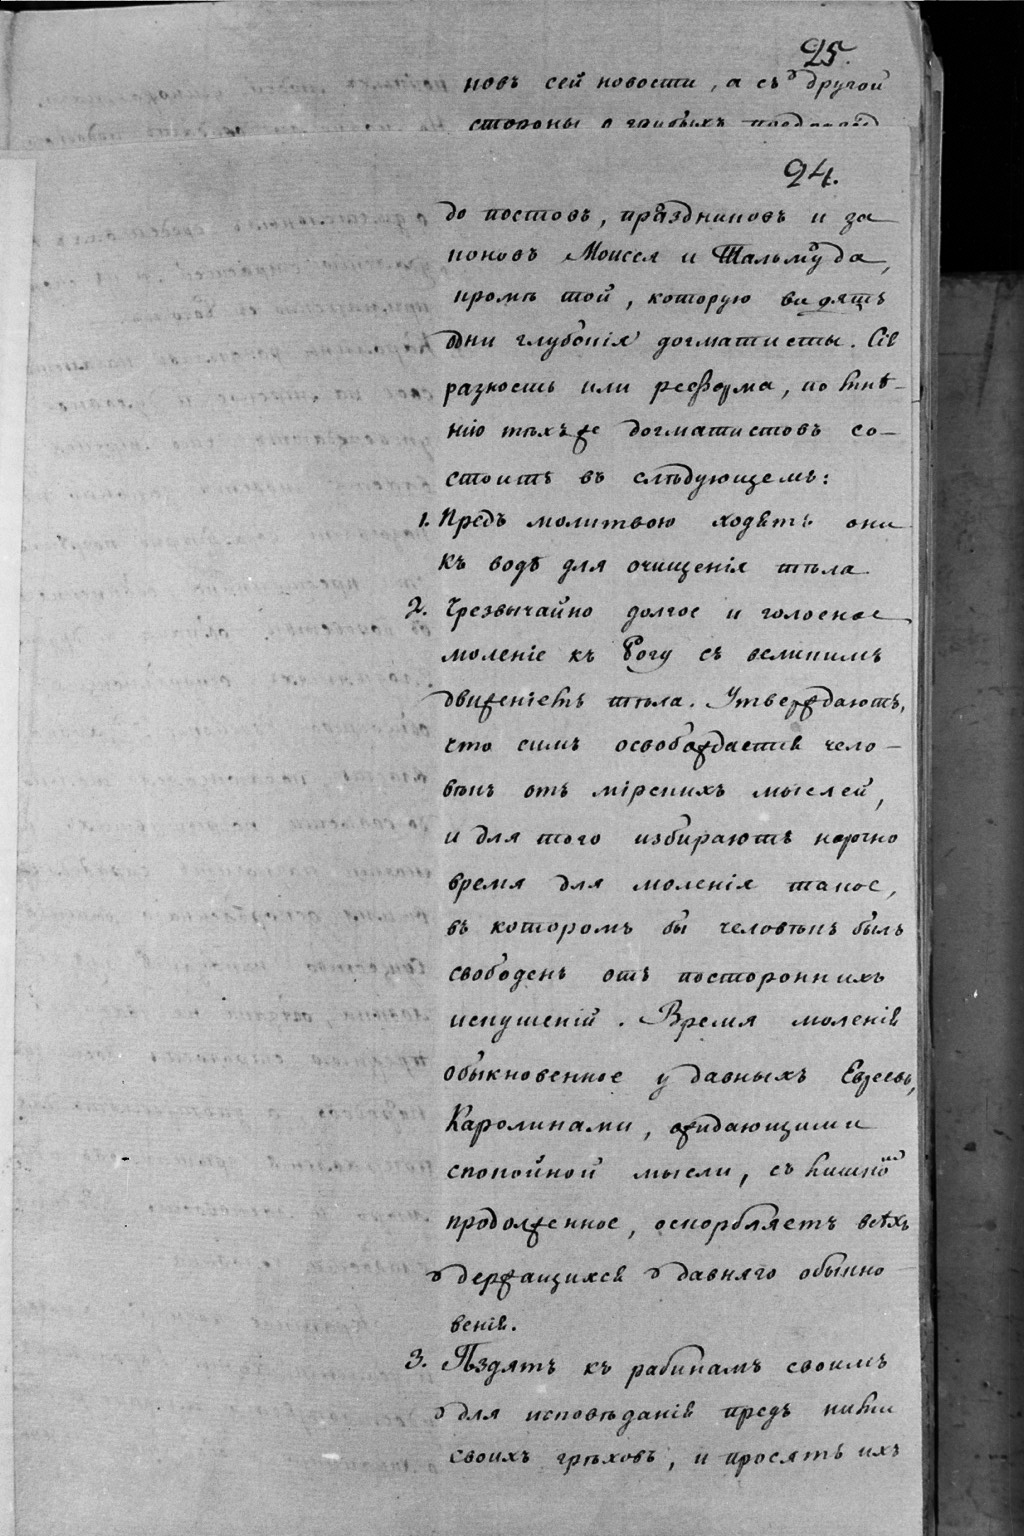 25.
новъ сей новости, а съ другой
стороны о
24.
до постовъ, праздниковъ и за
коновъ Моисея и Тальмуда,
кромѣ той, которую видятъ
одни глубокія догматисты. Сія
разность или реформа, по мнѣ-
нію тѣхъ же догматистовъ со-
стоитъ въ слѣдующемъ:
1. Предъ молитвою ходятъ они
къ водѣ для очищенія тѣла
2. Чрезвычайно долгое и голосное
моленіе къ Богу съ великимъ
движеніемъ тѣла. Утверждаютъ,
что симъ освобождается чело-
вѣкъ отъ мірскихъ мыслей,
и для того избираютъ нарочно
время для моленія такое,
въ которомъ бы человѣкъ былъ
свободенъ отъ постороннихъ
искушеній. Время моленія
обыкновенное у давныхъ Евреевъ,
Каролинами, ожидающими
спокойной мысли, съ
продолженное, оскорбляетъ всѣхъ
держащихся давняго обыкно
венія.
3. Ѣздятъ къ рабинамъ своимъ
для исповѣданія предъ ними
своихъ грѣховъ, и просятъ ихъ